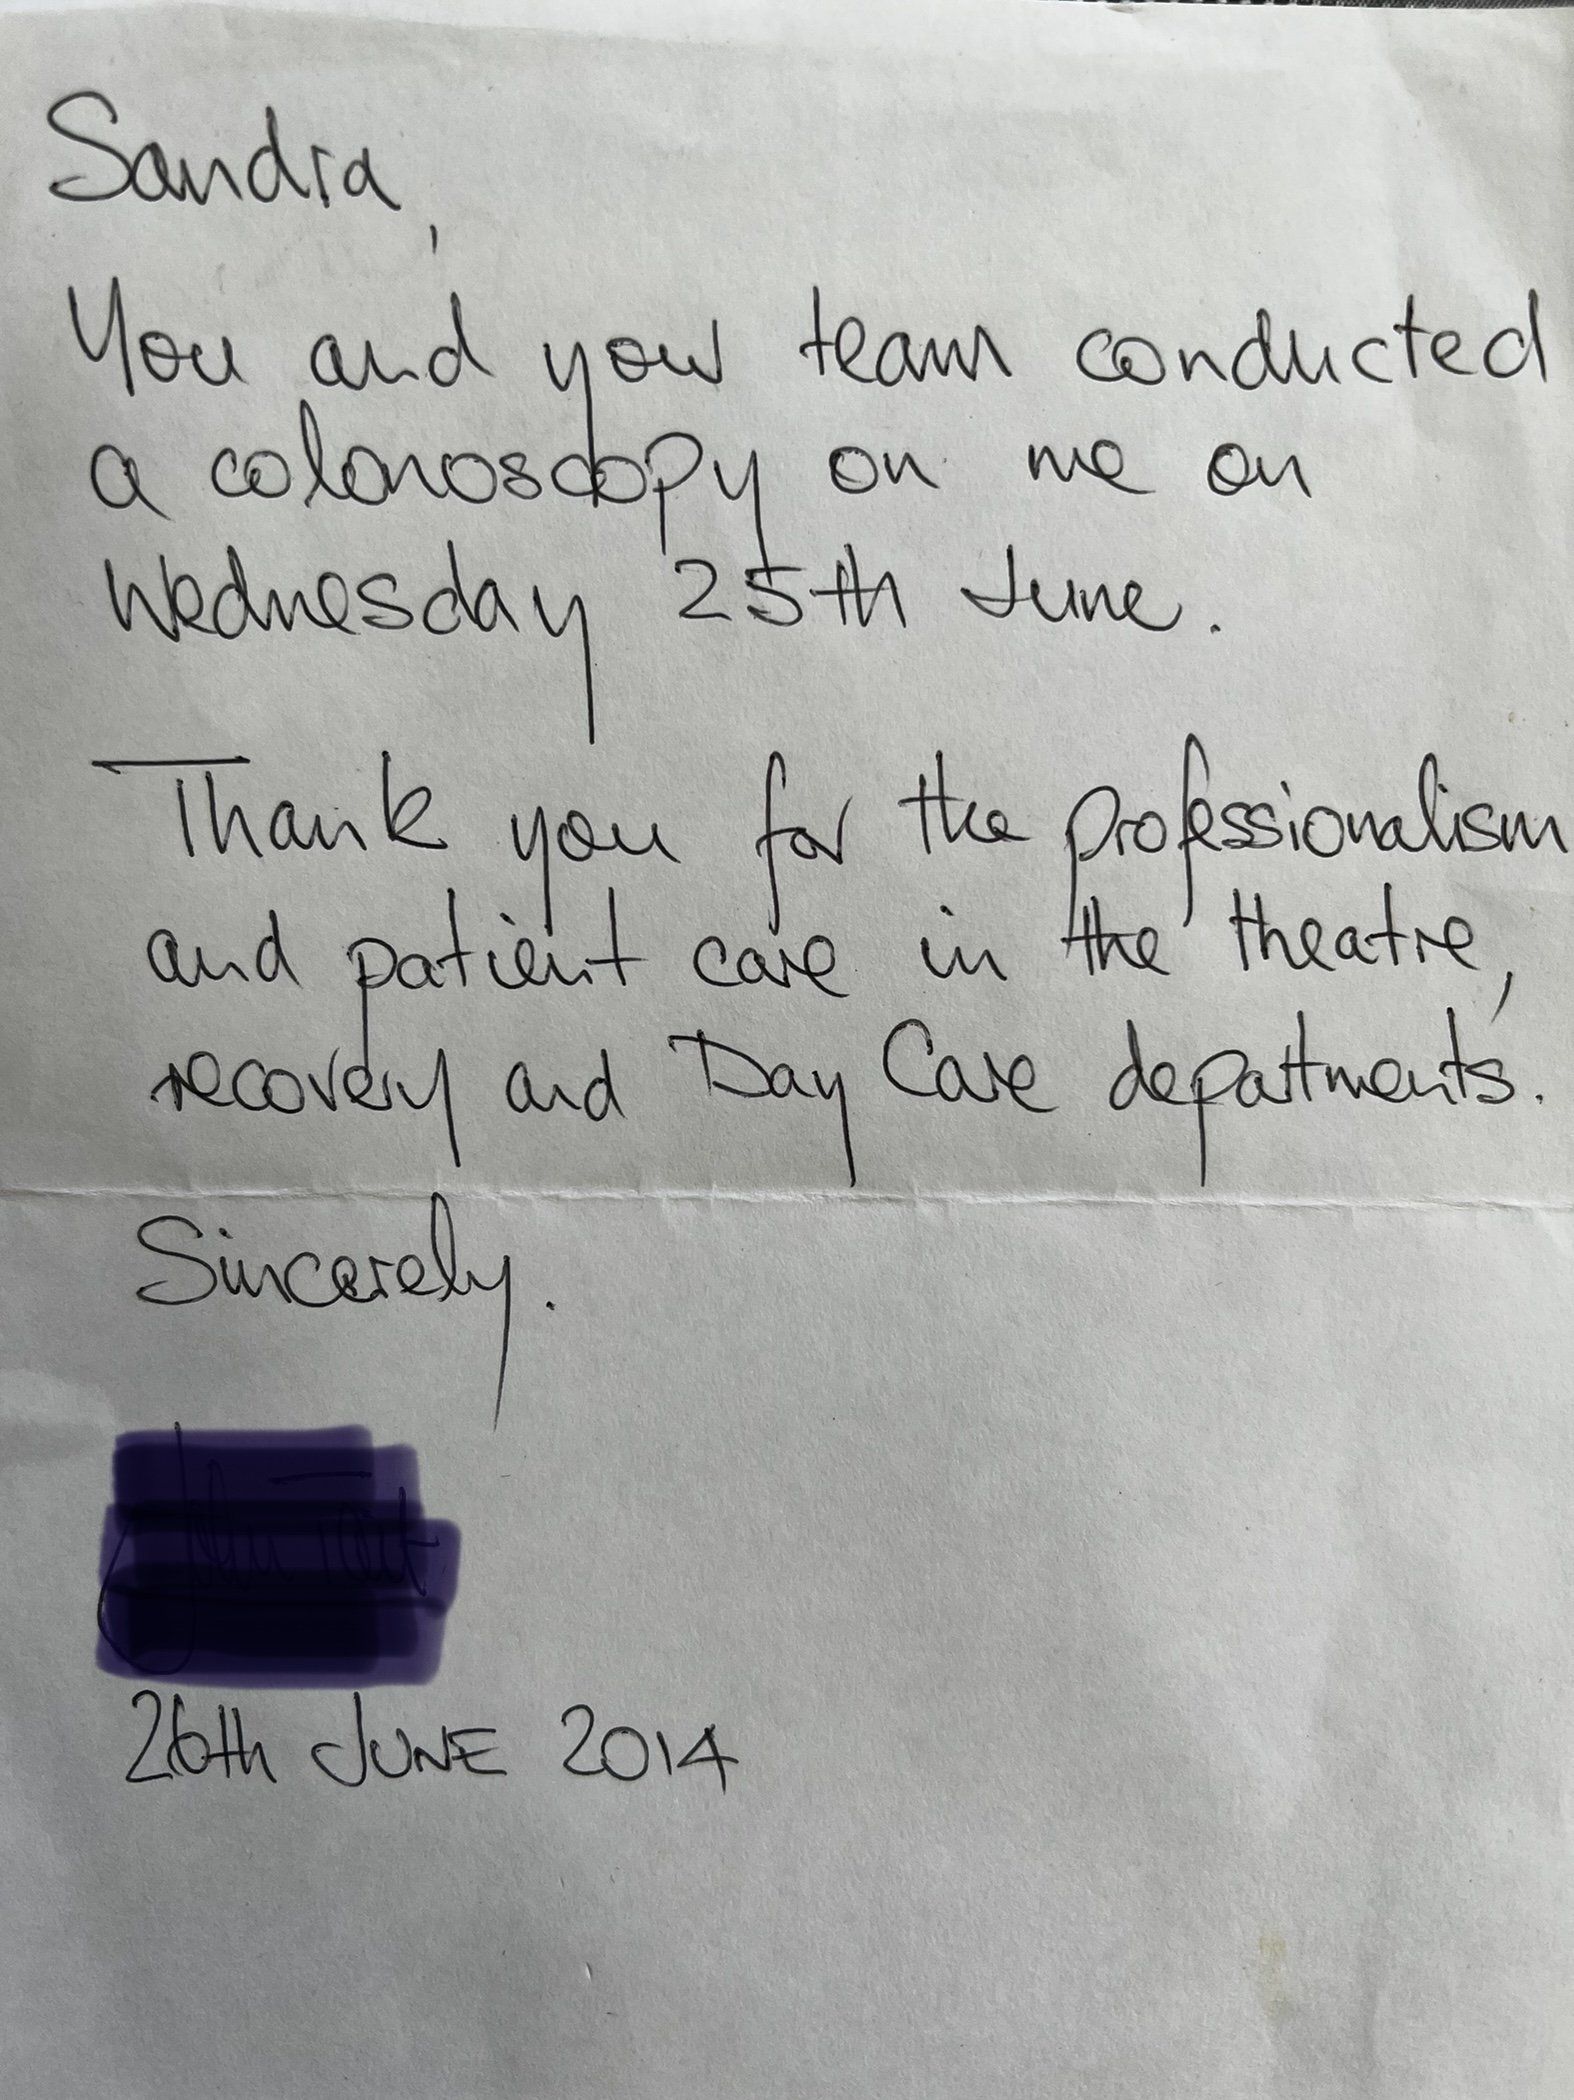 Sandra,
You and your team conducted
a colonoscopy on me on
Wednesday 25th June.
Thank you for the professionalism
and patient care in the theatre,
recovery and Day Care departments.
Sincerely.
26th JUNE 2014